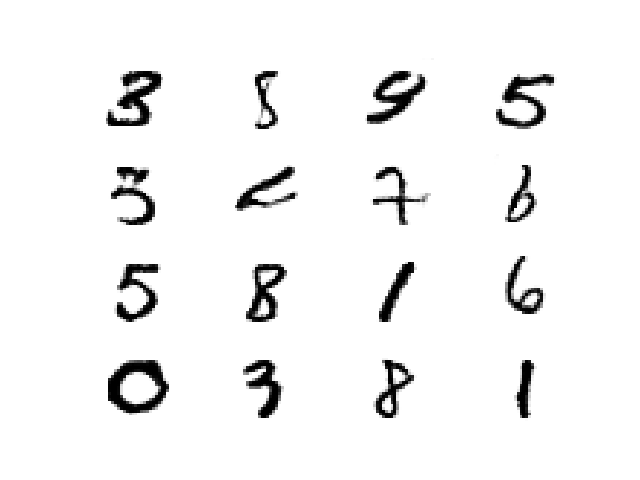 3 8 9 5
3 7 6
5 8 1 6
0 3 8 1